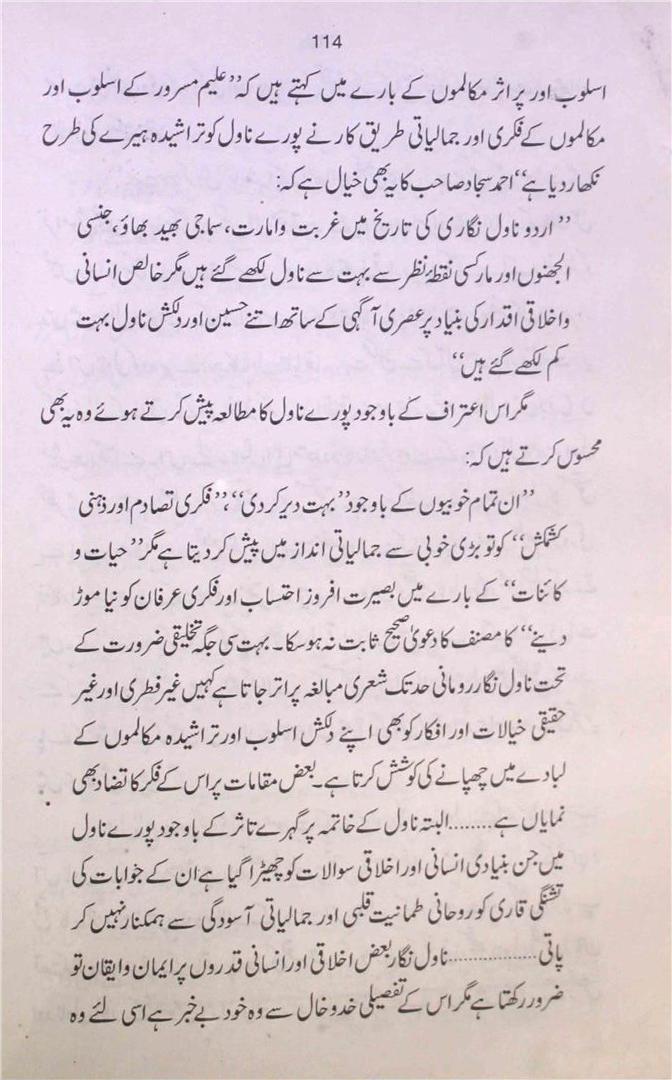 114
اسلوب اور پُر اثر مکالموں کے بارے میں کہتے ہیں کہ ’’علیم مسرور کے اسلوب اور
مکالموں کے فکری اور جمالیاتی طریق کار نے پورے ناول کو تراشیدہ ہیرے کی طرح
نکھار دیا ہے‘‘ احمد سجاد صاحب کا یہ بھی خیال ہے کہ:
’’اردو ناول نگاری کی تاریخ میں غربت و امارت، سماجی بھید بھاؤ، جنسی
الجھنوں اور مارکسی نقطۂ نظر سے بہت سے ناول لکھے گئے ہیں مگر خالص انسانی
و اخلاقی اقدار کی بنیاد پر عصری آگہی کے ساتھ اتنے حسین اور دلکش ناول بہت
کم لکھے گئے ہیں‘‘
مگر اس اعتراف کے باوجود پورے ناول کا مطالعہ پیش کرتے ہوئے وہ یہ بھی
محسوس کرتے ہیں کہ:
’’ان تمام خوبیوں کے باوجود ’’بہت دیر کر دی‘‘، ’’فکری تصادم اور ذہنی
کشمکش‘‘ کو تو بڑی خوبی سے جمالیاتی انداز میں پیش کر دیتا ہے مگر ’’حیات و
کائنات‘‘ کے بارے میں بصیرت افروز احتساب اور فکری عرفان کو نیا موڑ
دینے‘‘ کا مصنف کا دعویٰ صحیح ثابت نہ ہو سکا۔ بہت سی جگہ تخلیقی ضرورت کے
تحت ناول نگار رومانی حد تک شعری مبالغہ پر اتر جاتا ہے کہیں غیر فطری اور غیر
حقیقی خیالات اور افکار کو بھی اپنے دلکش اسلوب اور تراشیدہ مکالموں کے
لبادے میں چھپانے کی کوشش کرتا ہے۔ بعض مقامات پر اس کے فکر کا تضاد بھی
نمایاں ہے........ البتہ ناول کے خاتمہ پر گہرے تاثر کے باوجود پورے ناول
میں جن بنیادی انسانی اور اخلاقی سوالات کو چھیڑا گیا ہے ان کے جوابات کی
تشنگی قاری کو روحانی طمانیت قلبی اور جمالیاتی آسودگی سے ہمکنار نہیں کر
پاتی................ ناول نگار بعض اخلاقی اور انسانی قدروں پر ایمان و ایقان تو
ضرور رکھتا ہے مگر اس کے تفصیلی خدوخال سے وہ خود بے خبر ہے اسی لئے وہ